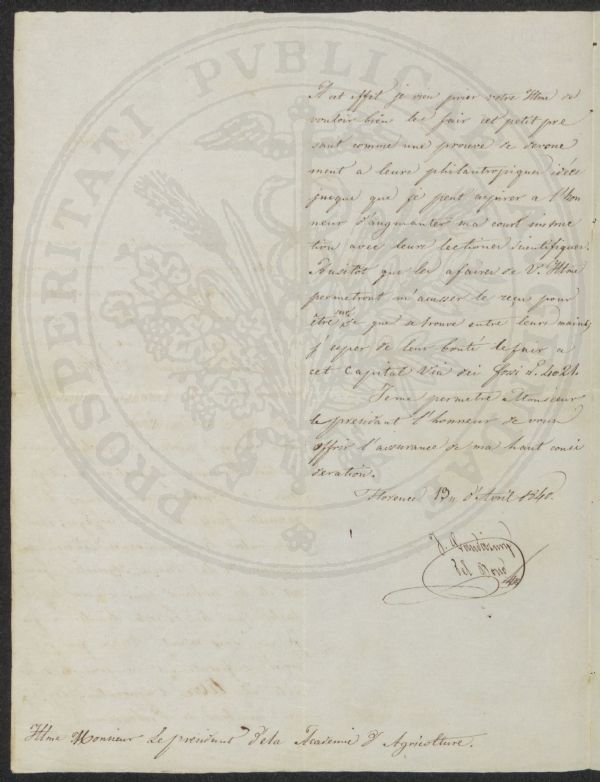 PROSPERITATI PUBLICAE
A cet effet je vien prier votre Illme de
vouloir bien les fair cet petit pre
sant comme une preuve de devoue
ment a leurs philantropiques idées
jusque que je peut aspirer a l'hon
neur d'augmanter ma court instruc
tion avec leurs lectiones scientifiques.
Ausitôt que les afaires de V. Illme
permetront m'acusser le recu pour
être sur que se trouve entre leurs mains,
j'esper de leur bonté le fair a
cet Capital Via dei Fossi
Jeme permetre Monsieur
le president l'honneur de vous
offrir l'assurance de ma haut consi
deration.
Florence 13 d'Avril 1840.
Illme Monsieur Le president dela Academie d'Agricolture.